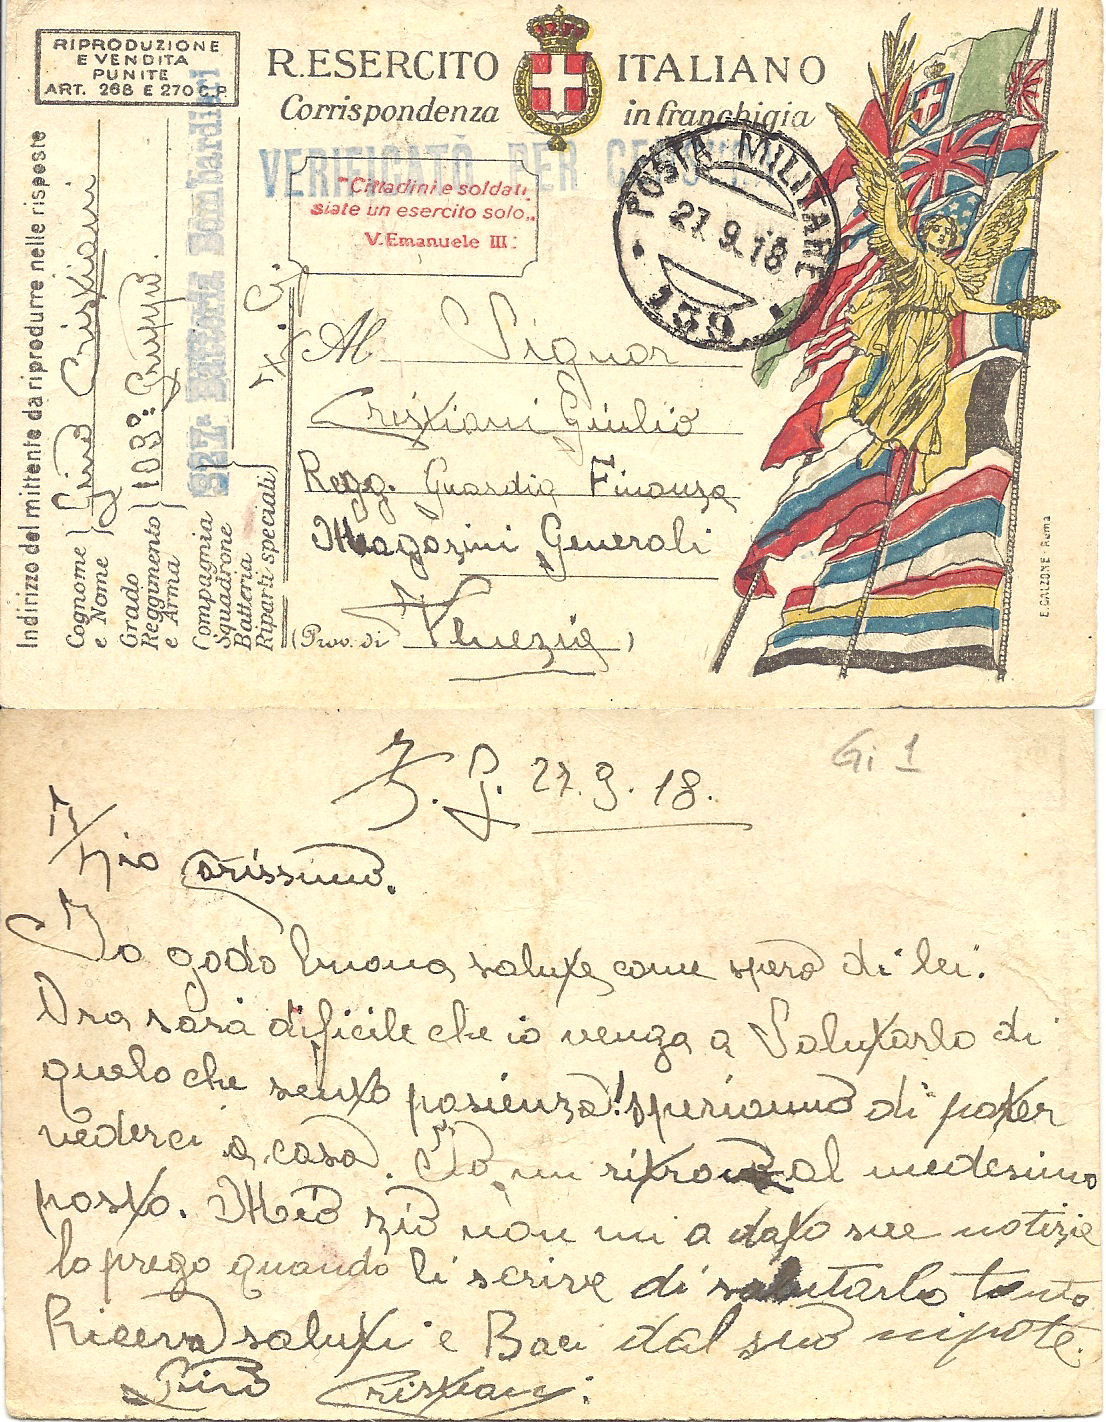 RIPRODUZIONE
E VENDITA
PUNITE
ART. 268 E 270 C.P.
R. ESERCITO ITALIANO
Corrispondenza in franchigia
VERIFICATO PER CENSURA
"Cittadini e soldati
siate un esercito solo„
V. Emanuele III:
POSTA MILITARE
27.9.18
139
Indirizzo del mittente da riprodurre nelle risposte
Cognome e Nome Gino Cristiani
Grado Reggimento e Arma 103º: Gruppo.
Compagnia Squadrone Batteria Riparti speciali 827ª Batteria Bombardieri
Al Signor
Cristiani Giulio
Regg. Guardia Finanza
Magazini Generali
(Prov. di Venezia)
E. CALZONE - Roma
Gi 1
Z. G. 27.9.18.
Zio Carissimo.
Io godo buona salute come spero di lei.
Ora sarà dificile che io venga a Salutarlo di
quelo che sento pasienza! speriamo di poter
vederci a casa. Io mi ritrovo al medesimo
posto. Mio zio non mi a dato sue notizie
lo prego quando li scrive di salutarlo tanto
Riceva saluti e Baci dal suo nipote.
Gino Cristiani: